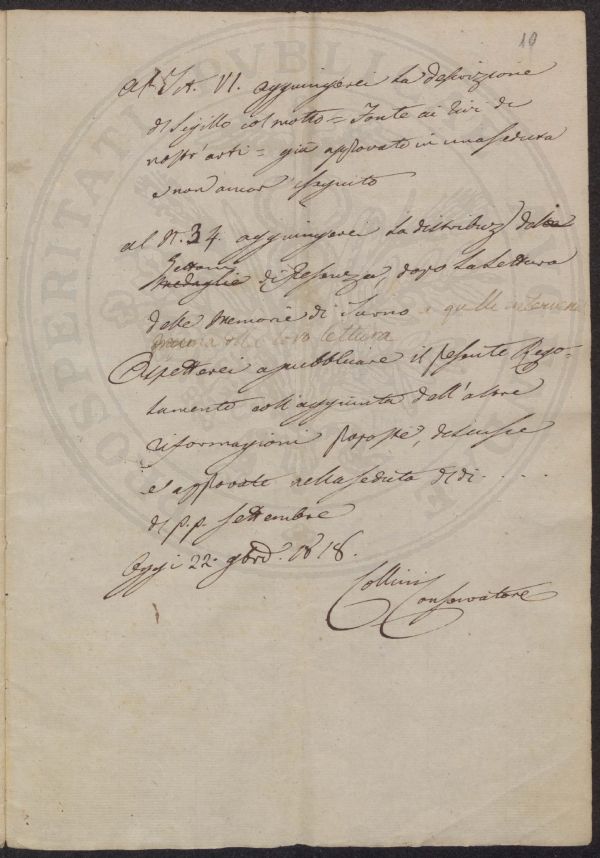 10
al Tit. VI. aggiungerei la descrizione
di Sigillo col motto = Fonte ai rivi di
nostr'arti = già approvato in una seduta
e non ancor eseguito
al N. 34. aggiungerei la distribuz. delle
Gettoni
Medaglie di Presenza, dopo la Lettura
delle Memorie di Turno a quelle
alla loro lettura
Aspetterei a pubblicare il presente Rego-
lamento coll'aggiunta dell'altre
riformagioni proposte, discusse
e approvate nella seduta de dì . . . .
di p.p. Settembre
Oggi 22. 9bre. 1818.
Collini
Conservatore
POSTERITATI
PVBLI